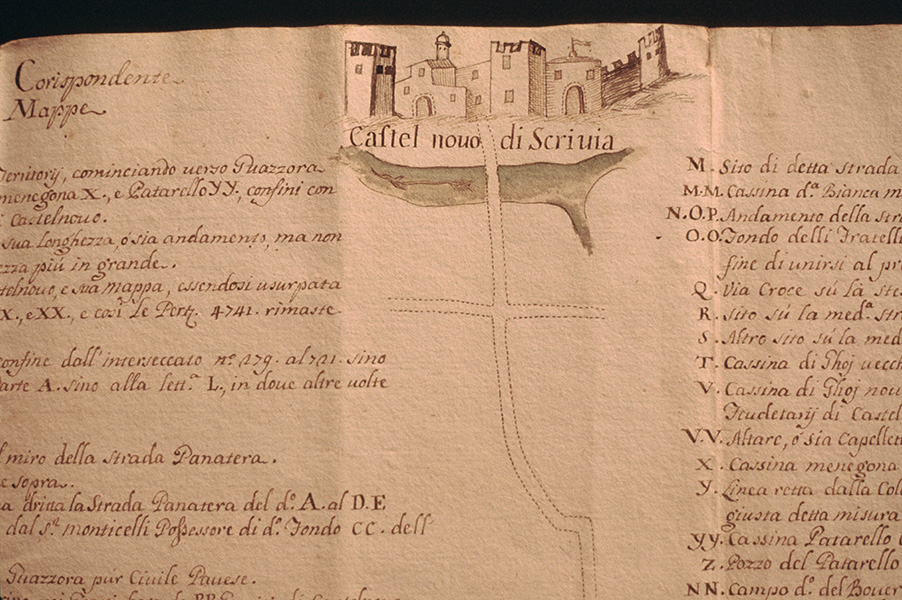 Corispondente
Mappe
Castel novo di Scrivia
Territorij, cominciando verzo Guazzora
menegona X., e Patarello YY, confini con
Castelnovo.
sua longhezza, ó sia andamento, ma non
ezza più in grande.
stelnovo, e sua mappa, essendosi usurpata
X., e XX., e così le Pertz. 4741. rimaste
confine dall'interseccato nº. 279. al 721. sino
arte A. sino alla lett.ª L., in dove altre volte
miro della strada Panatera.
e sopra.
a dritta la Strada Panatera del d.º A. al D.E
dal S.r monticelli Possessore di d.º Fondo CC. dell
Guazzora pur Civile Pavese.
M. Sito di detta strada
M.M. Cassina d.ª Bianca m
N.O.P. Andamento della stra
O.O. Fondo delli Fratelli
fine di unirsi al pr
Q. Via Croce sú la ste
R. sito sú la med.ª str
S. Altro sito sú la med
T. Cassina di Ghoj vecch
V. Cassina di Ghoj nov
Feudetarij di Castel
V.V. Altare, ó sia Capellet
X. Cassina menegona
Y. Linea retta dalla Col
giusta detta misura
YY. Cassina Patarello
Z. Pozzo del Patarello
NN. Campo d.º del Bover